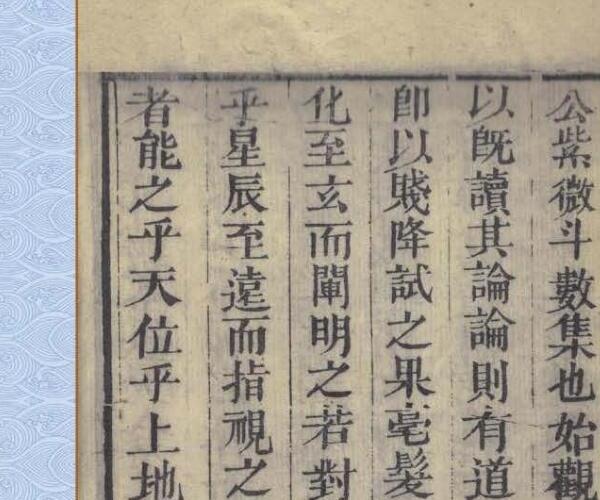 公紫微斗數集也始觀
以既讀其論論則有道
即以賤降試之果毫髮
化至玄而闡明之若對
乎星辰至遠而指視之
者能之乎天位乎上地